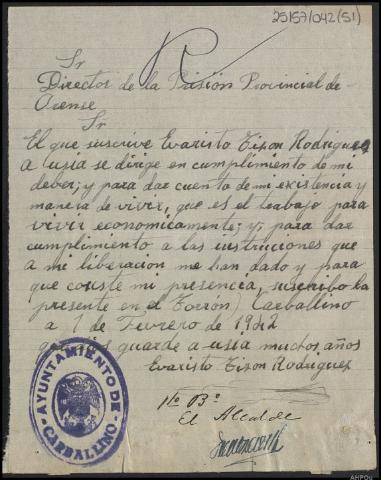 25157/042(51)
R
Sr
Director de la Prisión Provincial de
Orense
Sr
El que suscrive Evaristo Tizon Rodriguez
a usia se dirige en cumplimiento de mi
deber; y para dar cuenta de mi existencia y
manera de vivir, que es el trabajo para
vivir economicamente; y; para dar
cumplimiento a las instruciones que
a mi liberacion me han dado y para
que conste mi presencia, suscribo la
presente en el Torrón) Carballino
a 1 de Fevrero de 1942
guarde a usia muchos años
Evaristo Tizon Rodriguez
Vto Bº
El Alcalde
AYUNTAMIENTO DE CARBALLINO
AHPOu